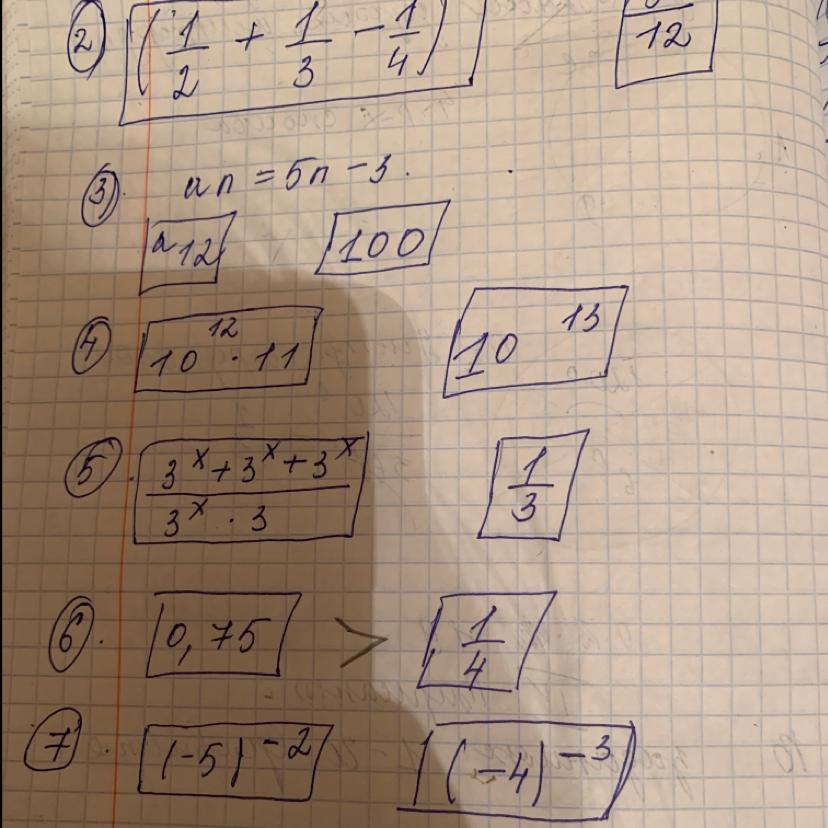 ② (1/2 + 1/3 - 1/4) /12
③. an = 5n - 3.
a12 100
④ 10^12 · 11 10^13
⑤. (3^x + 3^x + 3^x)/(3^x · 3) 1/3
⑥. 0,75 > 1/4
⑦. (-5)^-2 (-4)^-3